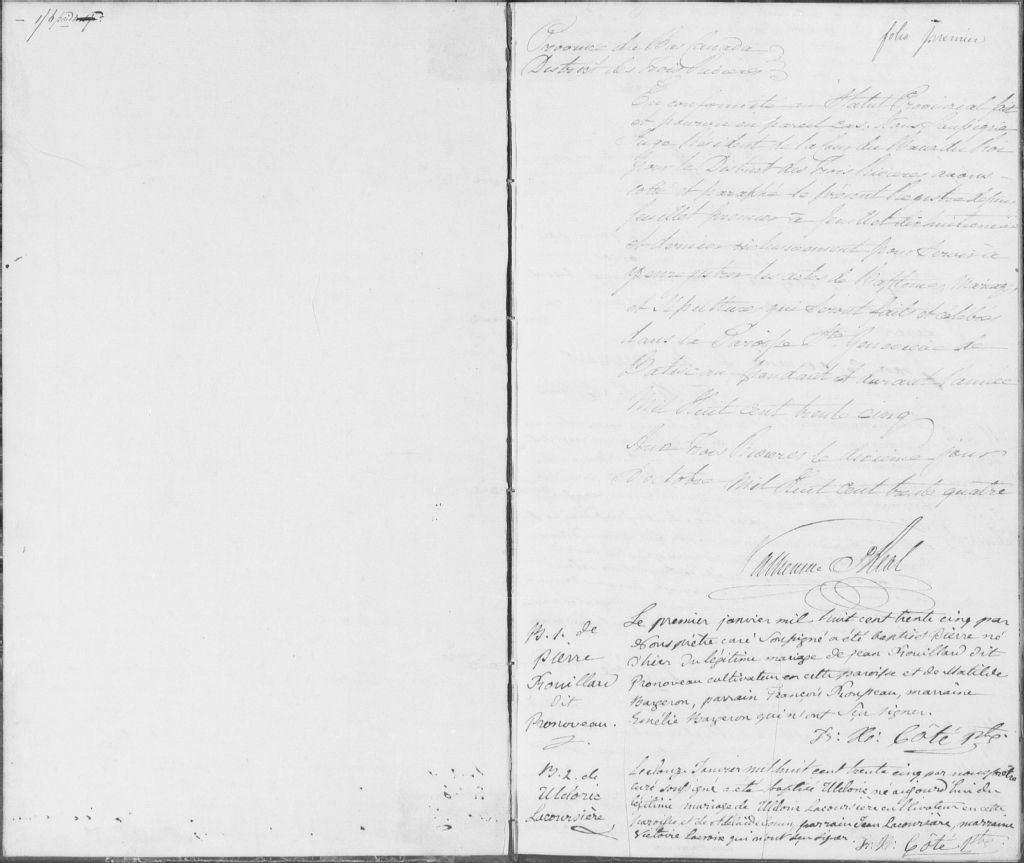 folio premier
Province du Bas Canada
District des trois Rivieres
En conformité au Statut Provincial fait
et pourvu en pareil cas. Nous Soussigné
Juge Résident de la Cour du Banc du Roi
pour le District des Trois Rivieres avons
coté et paraphé le présent Registre depuis
feuillet premier à feuillet dixhuitieme
et dernier inclusivement pour servir à
y enregistrer les actes de Baptemes, Mariages
et Sépultures qui seront faits et célébrés
dans la Paroisse Ste Genevieve de
Batiscan pendant et durant l'année
Mil Huit cent trente cinq
Aux Trois Rivieres le dixieme jour
D'octobre Mil Huit cent trente quatre
B. 1. de
Pierre
Rouillard
dit
Pronoveau.
Le premier janvier mil huit cent trente cinq par
Nous prêtre curé Soussigné a été baptisé Pierre né
d'hier du légitime mariage de jean Rouillard dit
Pronoveau cultivateur en cette paroisse et de Matilde
Bageron, parrain François Trompeau, marraine
Emélie Bageron qui n'ont Sçu Signer.
Fr: Xr: Côté Ptre.
B. 2. de
Uldoric
Lacoursière
Le douze Janvier mil huit cent trente cinq par nous prêtre
curé soussigné a été baptisé Uldoric né aujourd'hui du
légitime mariage de Uldoric Lacoursière cultivateur en cette
paroisse et de Adelaide parrain Jean Lacoursière, marraine
Victoire Lacroix qui n'ont Sçu signer. Fr: Xr: Côté Ptre